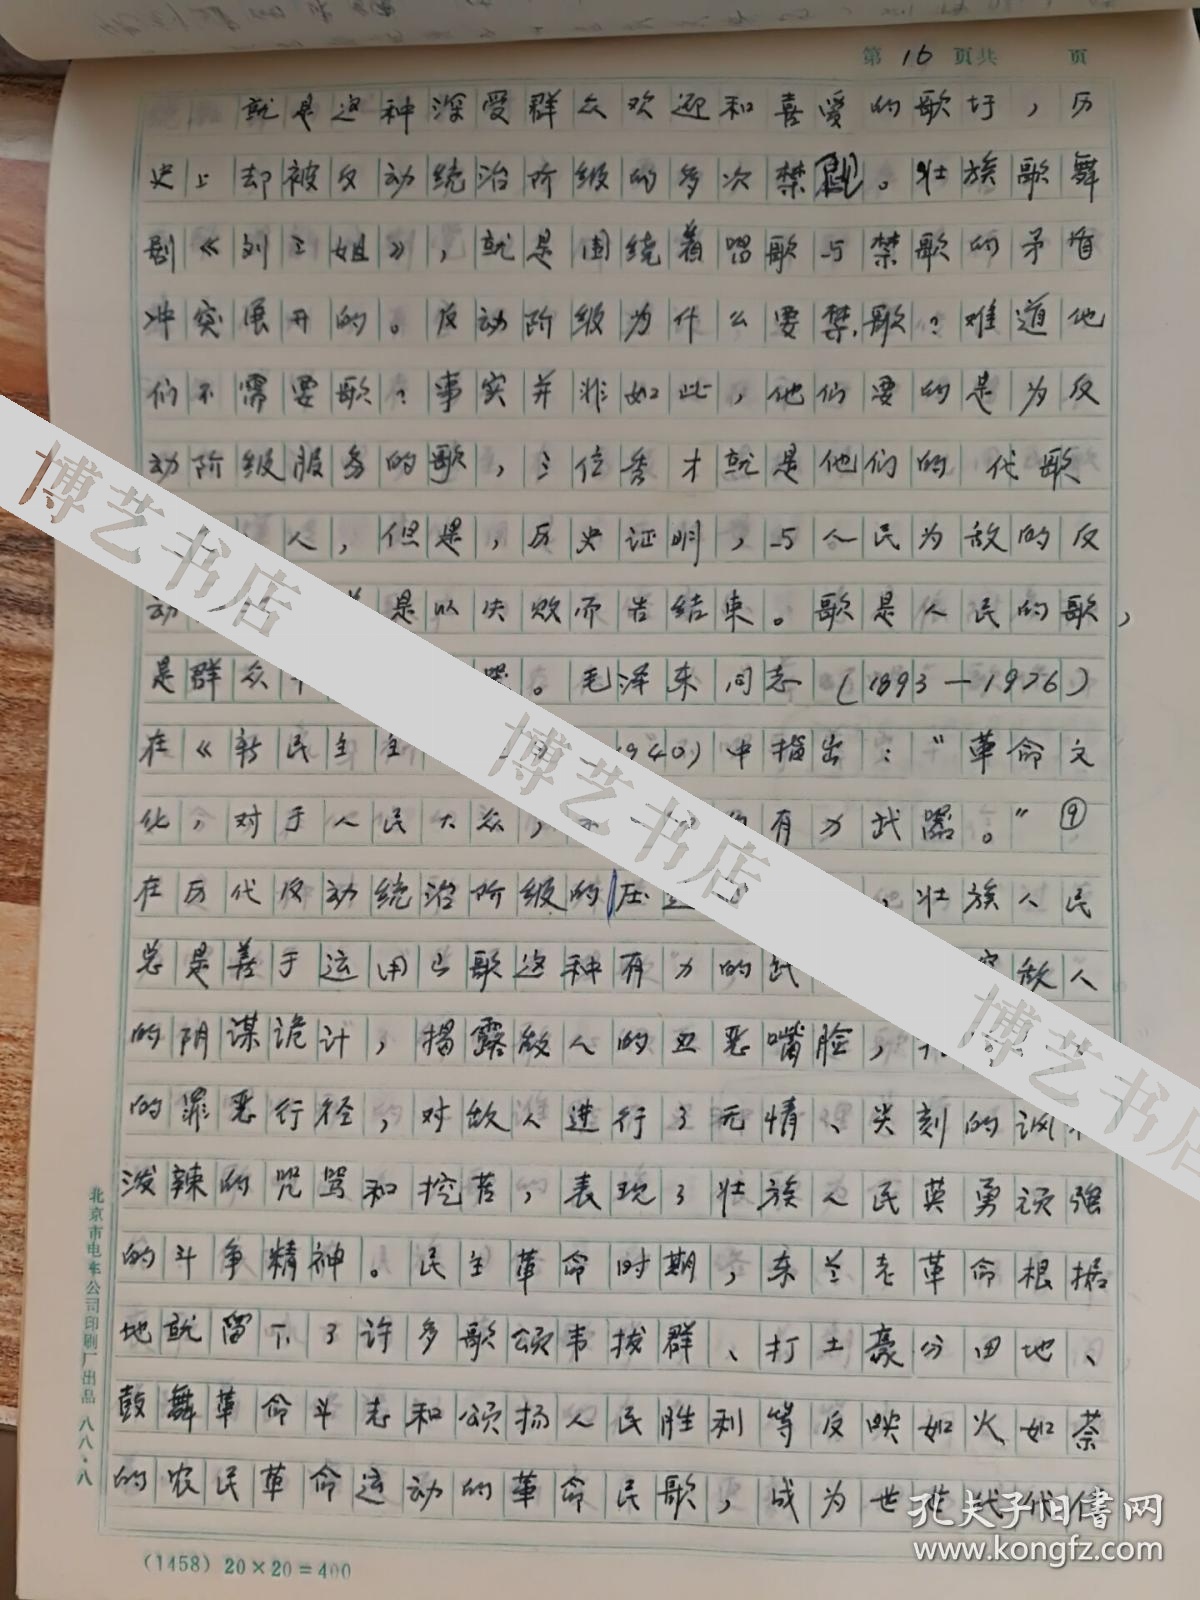 第16页共 页
就是这种深受群众欢迎和喜爱的歌圩，历
史上却被反动统治阶级的多次禁。壮族歌舞
剧《刘三姐》，就是围绕着唱歌与禁歌的矛盾
冲突展开的。反动阶级为什么要禁歌？难道他
们不需要歌？事实并非如此，他们要的是为反
动阶级服务的歌，三位秀才就是他们的代歌
人，但是，历史证明，与人民为敌的反
动是以失败而告结束。歌是人民的歌，
是群众。毛泽东同志（1893—1976）
在《新民主主940）中指出：“革命文
化，对于人民大众，有力武器。”⑨
在历代反动统治阶级的压，壮族人民
总是善于运用山歌这种有力的武敌人
的阴谋诡计，揭露敌人的丑恶嘴脸，
的罪恶行径，对敌人进行了无情、尖刻的讽
泼辣的咒骂和挖苦，表现了壮族人民英勇顽强
的斗争精神。民主革命时期，东兰老革命根据
地就留下了许多歌颂韦拔群、打土豪分田地、
鼓舞革命斗志和颂扬人民胜利等反映如火如荼
的农民革命运动的革命民歌，成为世世代代传
北京市电车公司印刷厂出品 八八·八
（1458）20×20=400
博艺书店
博艺书店
博艺书店
孔夫子旧书网
www.kongfz.com